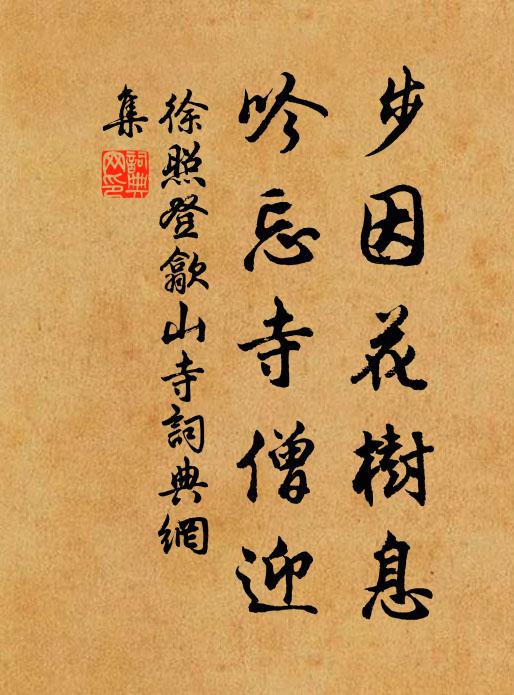 步因花樹息
吟忘寺僧迎
徐照登歙山寺詞典網
集
詞典
网印